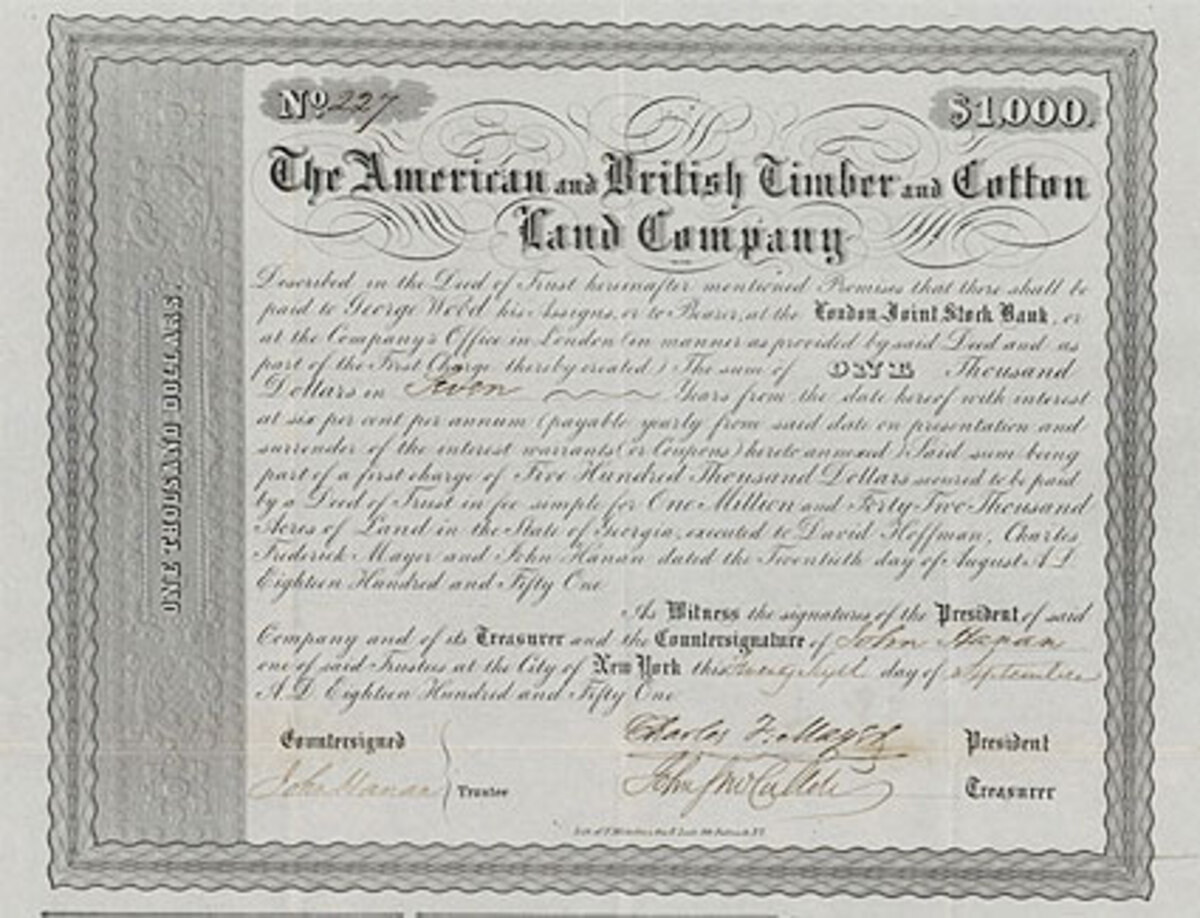 No 227
$1,000.
The American and British Timber and Cotton
Land Company
Described in the Deed of Trust hereinafter mentioned Promises that there shall be
paid to George Wood his Assigns, or to Bearer, at the London Joint Stock Bank, or
at the Company's Office in London (in manner as provided by said Deed and as
part of the First Charge thereby created) The sum of ONE Thousand
Dollars in Seven Years from the date hereof with interest
at six per cent per annum (payable yearly from said date on presentation and
surrender of the interest warrants (or Coupons) hereto annexed) Said sum being
part of a first charge of Five Hundred Thousand Dollars secured to be paid
by a Deed of Trust in fee simple for One Million and Forty-Two Thousand
Acres of Land in the State of Georgia, executed to David Hoffman, Charles
Frederick Mayer and John Hanan dated the Twentieth day of August A.D.
Eighteen Hundred and Fifty One
As Witness the signatures of the President of said
Company and of its Treasurer and the Countersignature of John Hanan
one of said Trustees at the City of New York this day of September
A.D. Eighteen Hundred and Fifty One
Countersigned
Charles F. Mayer President
John Hanan Trustee
Treasurer
ONE THOUSAND DOLLARS.